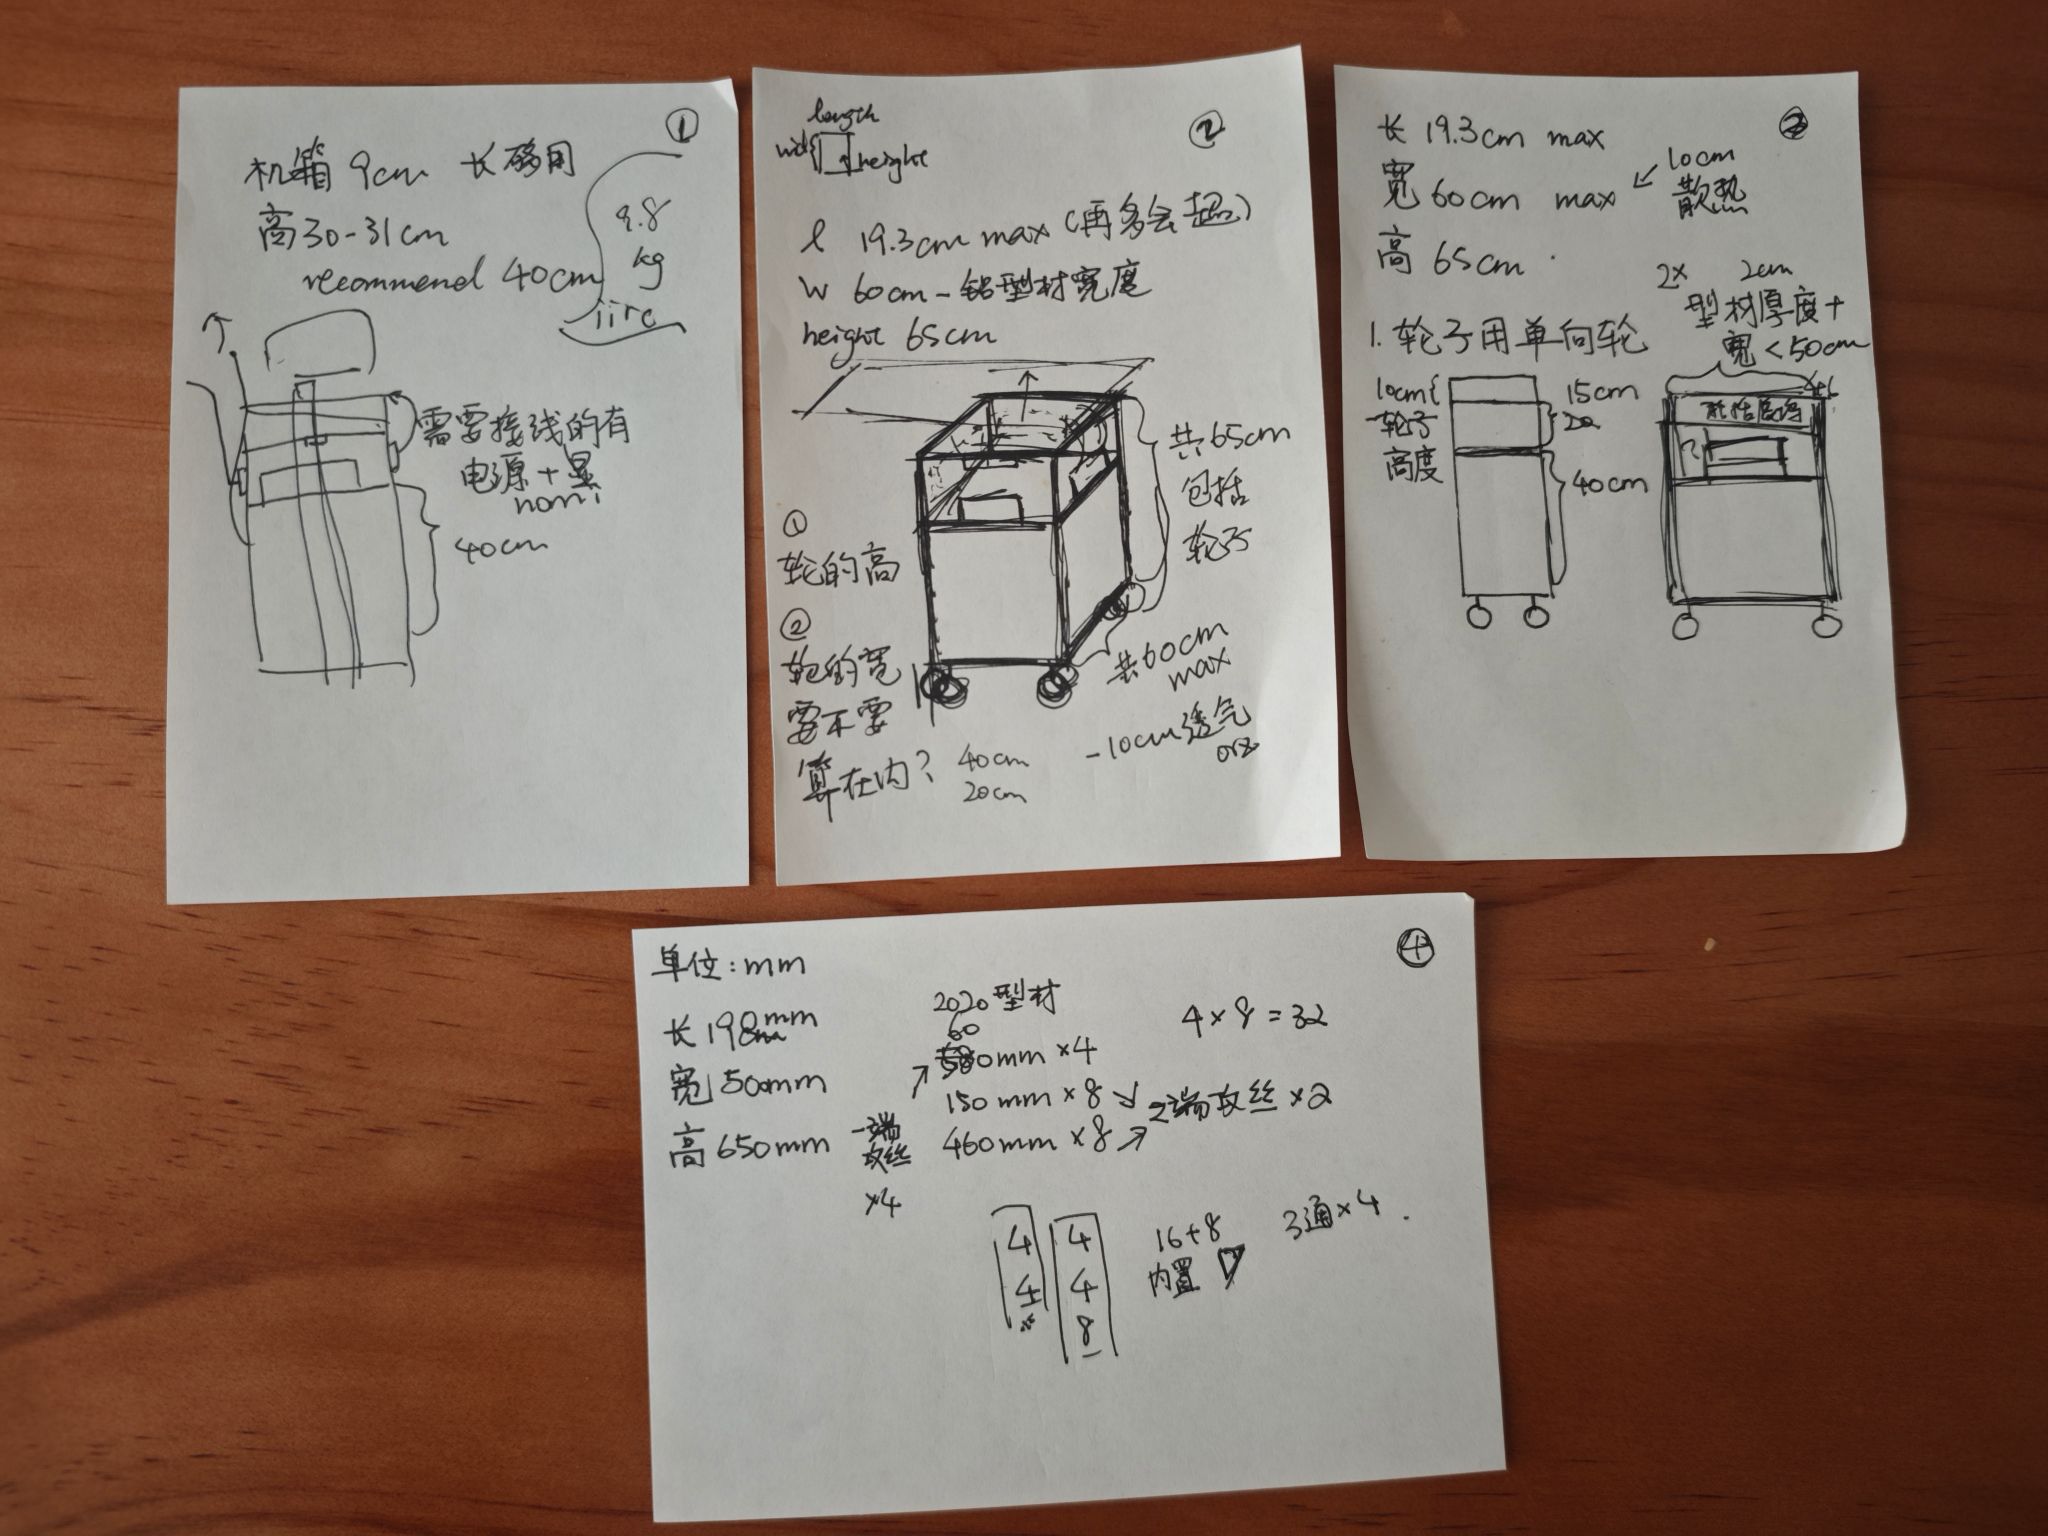 ①
机箱 9cm 长够用
高30-31cm
recommend 40cm
9.8
kg
iirc
需要接线的有
电源+显
nomi
40cm
②
length
wid
height
l 19.3cm max (再多会超)
w 60cm - 铝型材宽度
height 65cm
共65cm
包括
轮子
①
轮的高
②
轮的宽
要不要
算在内?
40cm
20cm
共60cm
max
-10cm透气
orz
长 19.3cm max
宽 60cm max
10cm
散热
高 65cm
2x 2cm
型材厚度+
宽<50cm
1. 轮子用单向轮
10cm
轮子
高度
15cm
40cm
④
单位:mm
长 198mm
宽 500mm
高 650mm
2020型材
60
580mm×4
150mm×8
460mm×8
一端
攻丝
×4
2端攻丝×2
4×8=32
4
4
4
4
8
16+8
内置
3通×4.